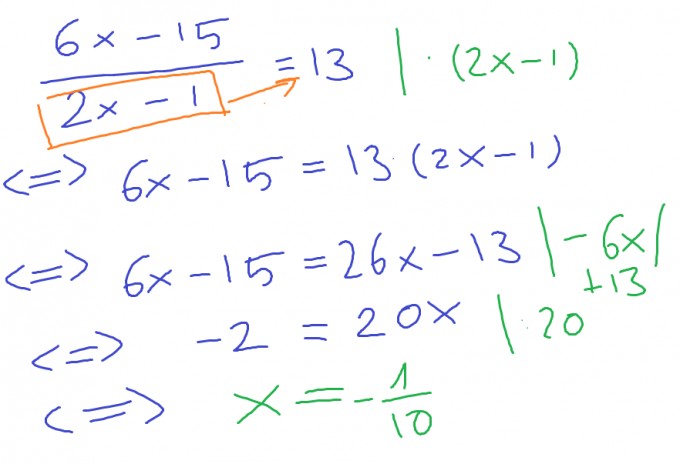 6x - 15
2x - 1
= 13 | · (2x - 1)
<=> 6x - 15 = 13 · (2x - 1)
<=> 6x - 15 = 26x - 13 | - 6x |
+ 13
<=> - 2 = 20x | : 20
<=> x = - 1/10